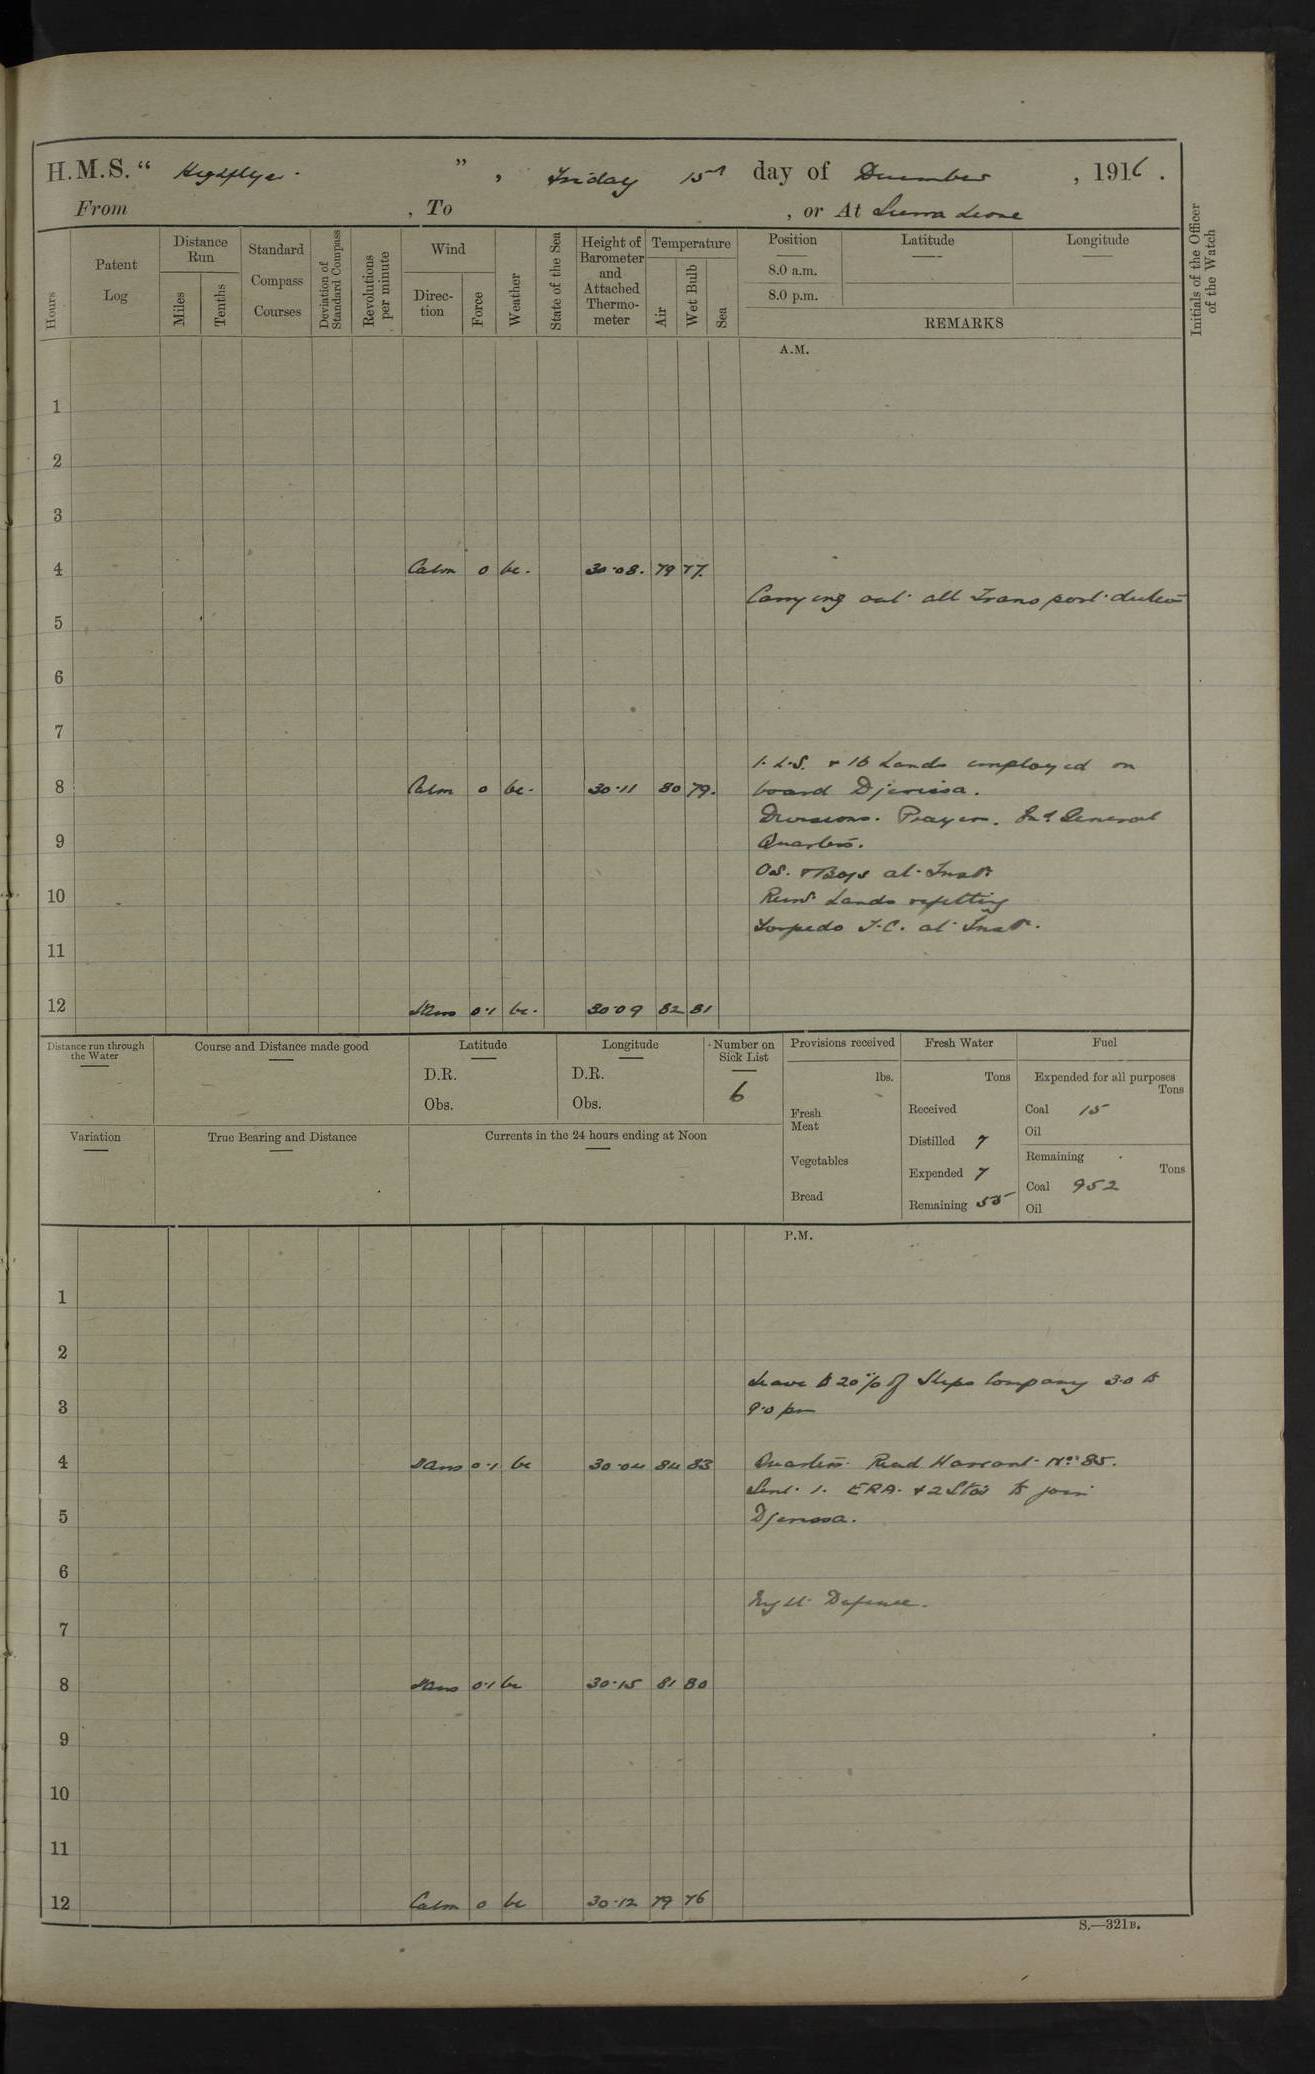 H.M.S. " Highflyer ", Friday 15th day of December, 1916.
From , To , or At Sierra Leone
Hours
Patent Log
Distance Run
Miles
Tenths
Standard Compass Courses
Deviation of Standard Compass
Revolutions per minute
Wind
Direction
Force
Weather
State of the Sea
Height of Barometer and Attached Thermometer
Temperature
Air
Wet Bulb
Sea
Position
8.0 a.m.
8.0 p.m.
Latitude
Longitude
REMARKS
Initials of the Officer of the Watch
A.M.
1
2
3
4 Calm 0 bc. 30.08. 79 77.
Carrying out all Transport duties
5
6
7
1. L.S. + 16 hands employed on
8 Calm 0 bc. 30.11 80 79. board Djerissa.
Divisions. Prayers. General
9 Quarters.
O.S. + Boys at Instn
10 Remr hands refitting
Torpedo T.C. at Instn.
11
12 0.1 bc. 30.09 82 81
Distance run through the Water
Course and Distance made good
Latitude
D.R.
Obs.
Longitude
D.R.
Obs.
Number on Sick List
6
Provisions received
lbs.
Fresh Meat
Vegetables
Bread
Fresh Water
Tons
Received
Distilled 7
Expended 7
Remaining 55
Fuel
Expended for all purposes
Tons
Coal 15
Oil
Remaining
Tons
Coal 952
Oil
Variation
True Bearing and Distance
Currents in the 24 hours ending at Noon
P.M.
1
2
Leave to 20% of Ships Company 3.0 to
3 9.0 pm
4 0.1 bc 30.04 84 83 Quarters. Read Warrant No. 85.
Sent 1. ERA. + 2 Stos to join
5 Djerissa.
6
Night Defence.
7
8 0.1 bc 30.15 81 80
9
10
11
12 Calm 0 bc 30.12 79 76
S.—321B.